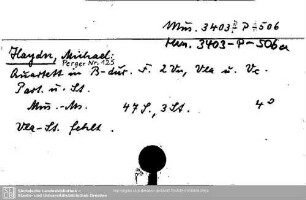 Mus. 3403-P-506
Mus. 3403-P-506a
Haydn, Michael:
Perger Nr. 125
Quartett in B-dur. F. 2 Vn, Vla u. Vc.
Part. u. St.
Mus.-Ms. 47 S., 3 St. 4°
Vla-St. fehlt.
Sächsische Landesbibliothek –
Staats- und Universitätsbibliothek Dresden